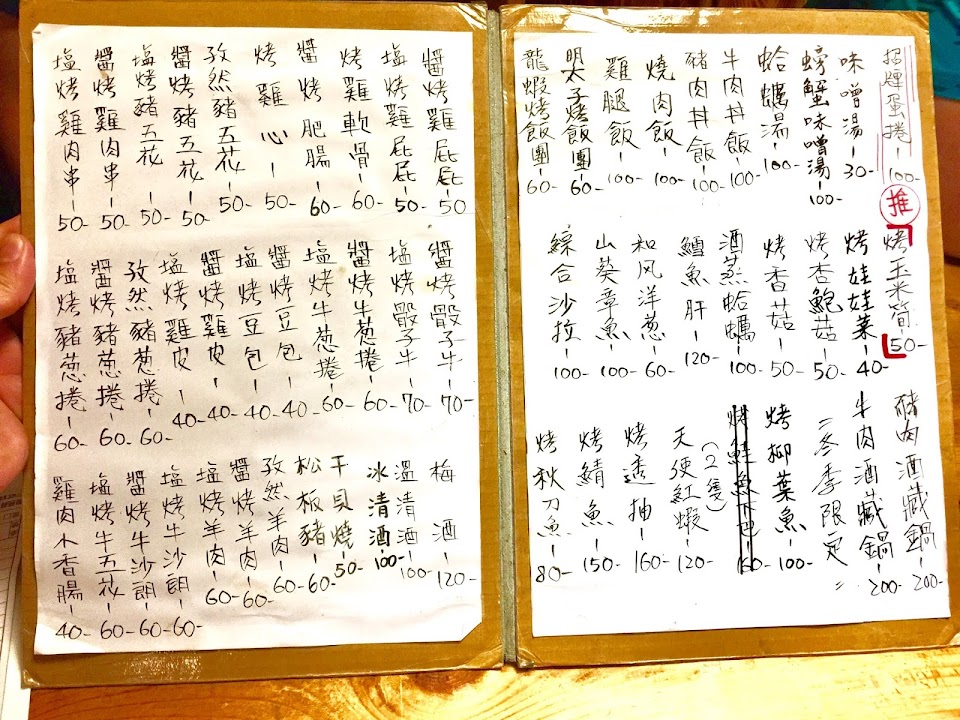 招牌蛋捲-100-
推
味噌湯-30-
螃蟹味噌湯-100-
蛤蠣湯-100-
牛肉丼飯-100-
豬肉丼飯-100-
燒肉飯-100-
雞腿飯-100-
明太子烤飯團-60-
龍蝦烤飯團-60-
烤玉米筍-50-
烤娃娃菜-40-
烤杏鮑菇-50-
烤香菇-50-
酒蒸蛤蠣-100-
鱈魚肝-120-
和风洋葱-60-
山葵章魚-100-
綜合沙拉-100-
豬肉酒藏鍋-200-
牛肉酒藏鍋-200-
=冬季限定=
烤柳葉魚-100-
烤鮭魚下巴-160-
天使紅蝦-120-
(2隻)
烤透抽-160-
烤鯖魚-150-
烤秋刀魚-80-
醬烤雞屁屁-50
塩烤雞屁屁-50-
烤雞軟骨-60-
醬烤肥腸-60-
烤雞心-50-
孜然豬五花-50-
醬烤豬五花-50-
塩烤豬五花-50-
醬烤雞肉串-50-
塩烤雞肉串-50-
醬烤骰子牛-70-
塩烤骰子牛-70-
醬烤牛葱捲-60-
塩烤牛葱捲-60-
醬烤豆包-40-
塩烤豆包-40-
醬烤雞皮-40-
塩烤雞皮-40-
孜然豬葱捲-60-
醬烤豬葱捲-60-
塩烤豬葱捲-60-
梅酒-120-
溫清酒-100-
冰清酒-100-
干貝燒-50-
松板豬-60-
孜然羊肉-60-
醬烤羊肉-60-
塩烤羊肉-60-
塩烤牛沙朗-60-
醬烤牛沙朗-60-
塩烤牛五花-60-
雞肉小香腸-40-